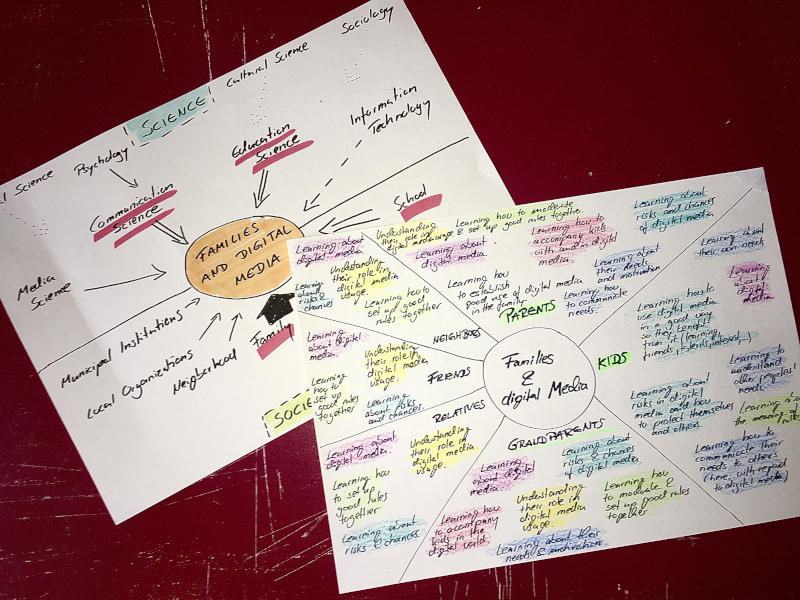 Sociology
Cultural Science
SCIENCE
Information
Technology
Education
Science
Psychology
l Science
Communication
Science
School
FAMILIES
AND DIGITAL
MEDIA
Media
Science
Municipal Institutions
Local Organizations
Neighborhood
Family
SOCIE
Families
&
digital Media
PARENTS
Understanding
their role in
digital media usage
Learning how to moderate
& set up good rules together.
Learning about
digital media
Learning how to
accompany
kids with
and in digital
media.
Learning how
to establish
good use of digital media
in the family
Learning about
their needs
and motivation
Learning how
to communicate
needs.
KIDS
Learning about
risks and chances
of digital media
Learning about
their own needs
Learning
about
digital
media
Learning how to
use digital media
in a good way
so they benefit
from it (learning,
friends,
Learning to
understand
other peoples'
needs
Learning about
risks in digital
media and how
to protect themselves
and others.
Learning about
the meaning of
Learning how to
communicate their
needs to others
(here: with regard
to digital media)
GRAUDPARENTS
Learning about
digital
media.
Learning about
risks & chances
of digital media
Understanding
their role in
digital media
usage.
Learning how
to moderate &
set up good rules
together
Learning how
to accompany
kids in the
digital world.
Learning about their
needs & motivation
RELATIVES
Learning about
digital media.
Understanding
their role in
digital media
usage.
Learning how
to set up
good rules
together
Learning about
risks & chances
FRIENDS
Learning
about digital
media.
Understanding
their role in
digital media
usage.
Learning
how to
set up
good rules
together
Learning about risks
and chances.
NEIGHBORS
Learning about
digital media
Understanding
their role in
digital media
usage.
Learning
about
risks &
chances
Learning how to
set up good
rules together